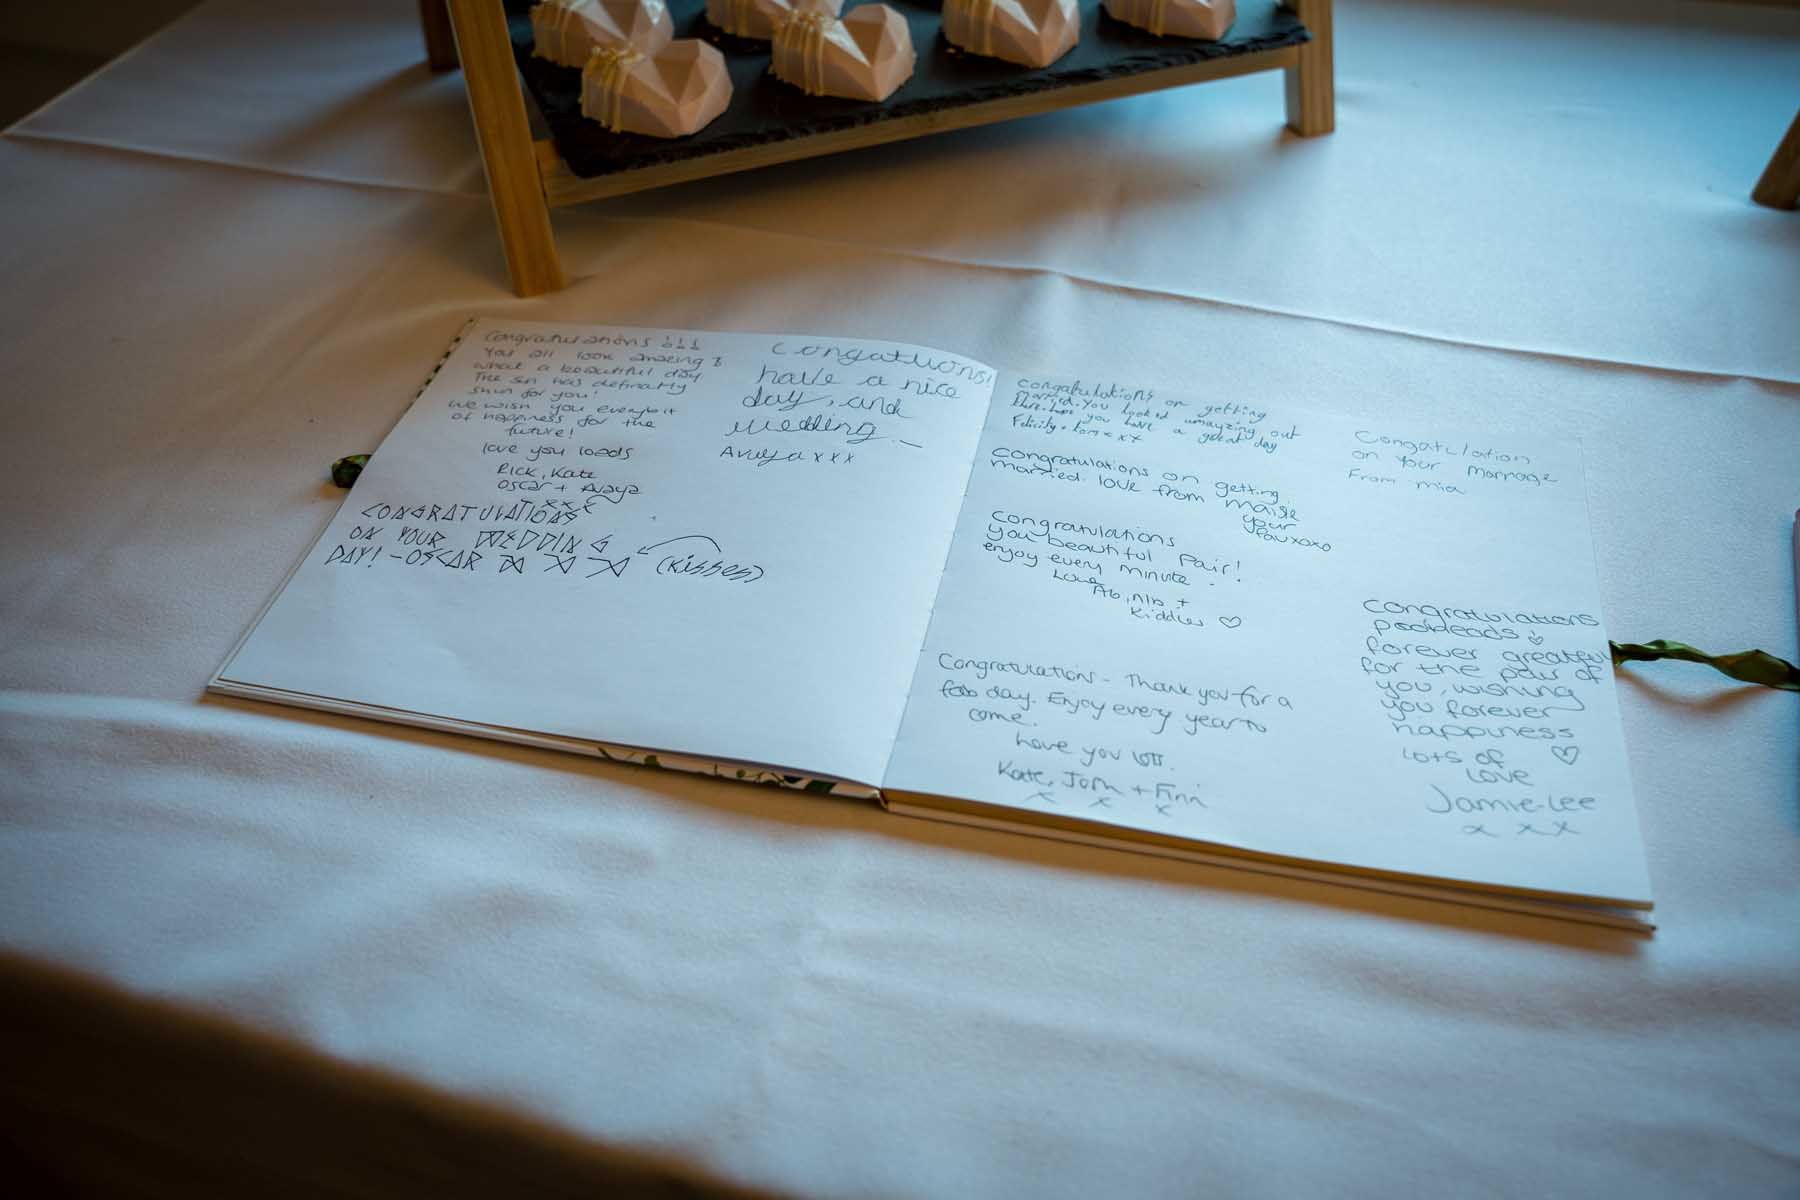 Congratulations !!!
You all look amazing &
what a beautiful day
The sun has definatly
shun for you!
We wish you everybit
of happiness for the
future!
love you loads
Rick, Kate
Oscar + Avaya
x x x
CONGRATULATIONS
ON YOUR WEDDING
DAY! - OSCAR
(kisses)
Congatuions!
have a nice
day, and
wedding.
Avaya x x x
congatulations on getting
married. You looked amayzing out
there. hope you have a great day
Felicity + Tom x x x
Congratulations on getting
married. love from Maisie
your
fav xoxo
Congratulations
you beautiful pair!
enjoy every minute.
Love
Ab, Alb +
Kiddies ♡
Congratulations - Thank you for a
fab day. Enjoy every year to
come.
Love you lots.
Kate, John + Finn
x x x
Congatulation
on Your Marrage
From mia
Congratulations
pookeads
forever greatful
for the pair of
you, wishing
you forever
happiness
Lots of ♡
Love
Jamie-Lee
x x x